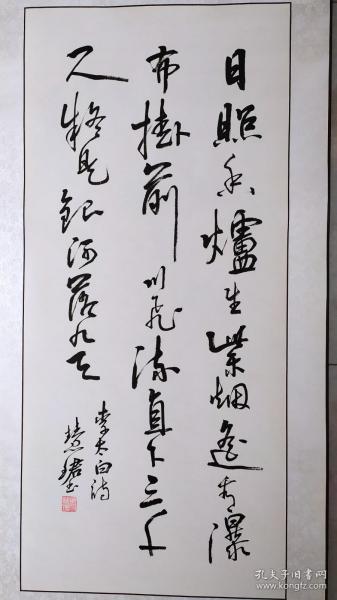 日照香爐生紫烟遙看瀑
布掛前川飛流直下三千
尺疑是銀河落九天
李太白詩
慧珺書
孔夫子旧书网